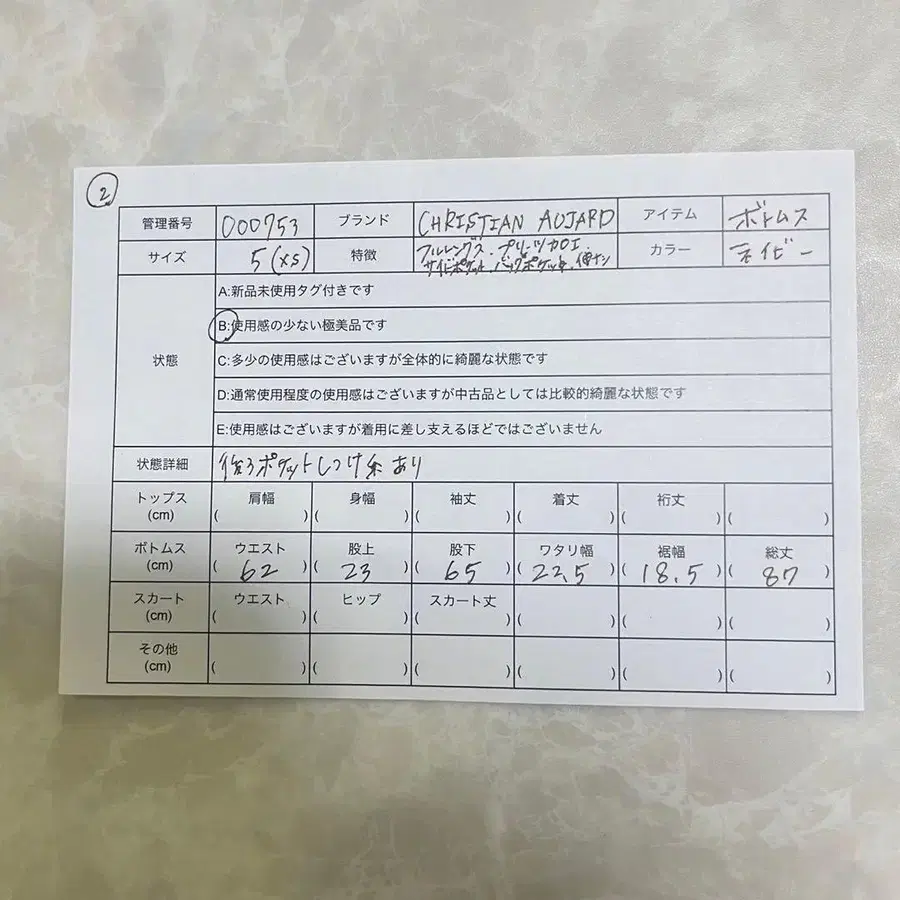 2
管理番号 000753 ブランド CHRISTIAN AUJARD アイテム ボトムス
サイズ 5(XS) 特徴 フルレングス、プリーツカロエ、 カラー ネイビー
サイドポケット、バックポケット、伸ナシ
状態
A:新品未使用タグ付きです
B:使用感の少ない極美品です
C:多少の使用感はございますが全体的に綺麗な状態です
D:通常使用程度の使用感はございますが中古品としては比較的綺麗な状態です
E:使用感はございますが着用に差し支えるほどではございません
状態詳細 後ろポケットしつけ糸あり
トップス 肩幅 身幅 袖丈 着丈 裄丈
(cm) ( ) ( ) ( ) ( ) ( ) ( )
ボトムス ウエスト 股上 股下 ワタリ幅 裾幅 総丈
(cm) (62) (23) (65) (22.5) (18.5) (87)
スカート ウエスト ヒップ スカート丈
(cm) ( ) ( ) ( ) ( ) ( ) ( )
その他
(cm) ( ) ( ) ( ) ( ) ( ) ( )